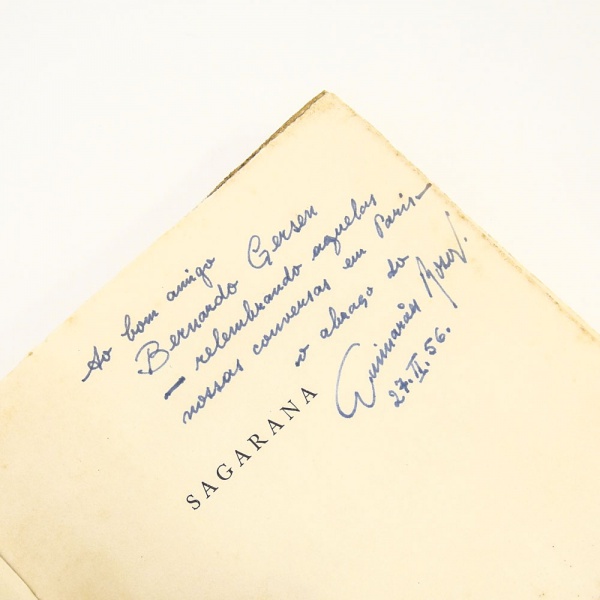 Ao bom amigo
Bernardo Gersen
— relembrando aquelas
nossas conversas em Paris —
o abraço do
Guimarães Rosa.
27.II.56.
SAGARANA